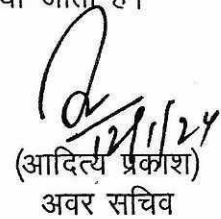 जाता है।
12/1/24
(आदित्य प्रकाश)
अवर सचिव